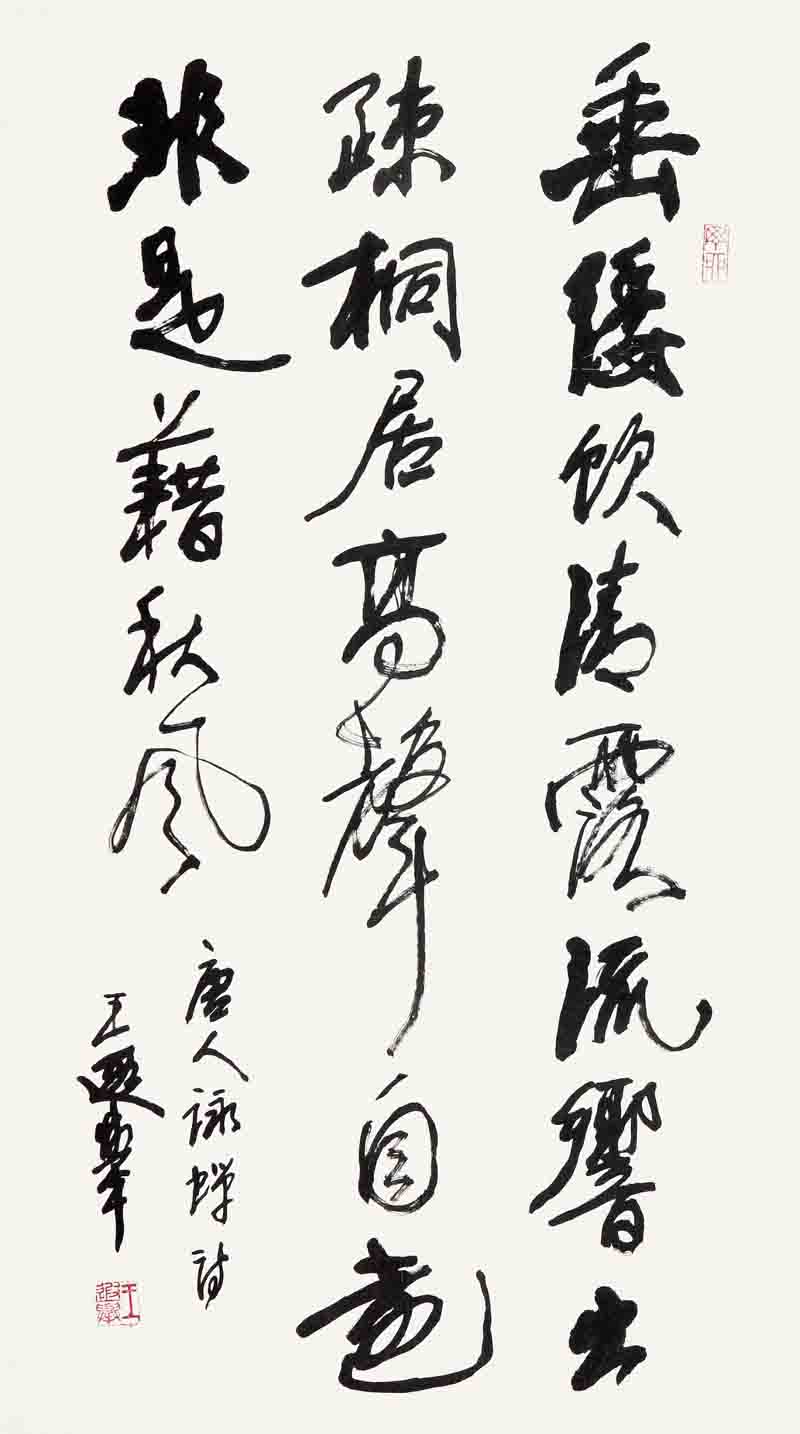 垂緌飲清露流響出
疎桐居高聲自遠
非是藉秋風
唐人詠蟬詩
王遐舉
王遐舉